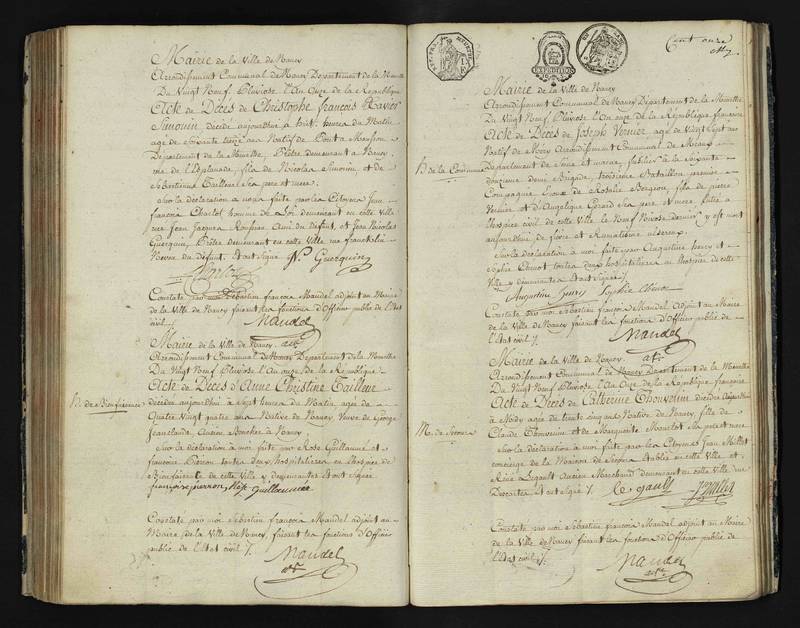 Mairie de la Ville de Nancy
Arrondissement Communal de Nancy Département de la Meurthe
Du Vingt Neuf Pluviose l'An Onze de la République
Acte de Décès de Christophe François Xavier
Simonin décédé aujourd'hui à huit heures du Matin
agé de Soixante treize ans Natif de Pont a Mousson
Département de la Meurthe, Prêtre demeurant a Nancy
rue de l'Esplanade, fils de Nicolas Simonin, et de
Sébastienne Tailleur Ses pere et mere
Sur la déclaration a nous faite par les Citoyens Jean
françois Charlot homme de Loi demeurant en cette Ville
rue Jean Jacques Rousseau Ami du défunt, et Jean Nicolas
Guerquin, Prêtre demeurant en cette Ville rue franklin
Neveu du défunt. Et ont Signé N. Guerquin
Charlot
Constaté par moi Sébastien françois Mandel adjoint au Maire
de la Ville de Nancy faisant les fonctions d'Officier public de l'Etat
civil
Mandel
adt
Mairie de la Ville de Nancy
Arrondissement Communal de Nancy Département de la Meurthe
Du Vingt Neuf Pluviose l'An onze de la République
H. de Bienfaisance
Acte de Décès d'Anne Christine Tailleur
décédée aujourd'hui à Sept heures du Matin, agée de
Quatre Vingt quatre ans Native de Nancy, Veuve de George
Jeanclaude, Ancien Boucher à Nancy
Sur la déclaration à moi faite par Rose Guillaume et
françoise Pierron toutes deux hospitalières en l'hospice de
Bienfaisance de cette Ville y demeurantes Et ont Signé
françoise pierron, Rose Guillaume
Constaté par moi Sébastien françois Mandel adjoint au
Maire de la Ville de Nancy, faisant les fonctions d'Officier
public de l'Etat civil
Mandel
adt
Cent onze
EXPEDITION
Mairie de la Ville de Nancy
Arrondissement Communal de Nancy Département de la Meurthe
Du Vingt Neuf Pluviose l'An onze de la République française
Acte de Décès de Joseph Vernier agé de Vingt Sept ans
Natif de Arrondissement Communal de Meaux
Département de Seine et marne, fusilier à la Soixante
douzieme demi Brigade, troisieme Bataillon premiere
Compagnie, Epoux de Rosalie Bergeon, fils de pierre
Vernier et d'Angelique Girard Ses pere et mere, Entré à
l'hospice civil de cette Ville le Neuf Nivose dernier y est mort
aujourd'hui, de fievre et Rumatisme
Sur la déclaration à moi faite par Augustine henry et
Sophie Chenot toutes deux hospitalieres au Hospice de cette
Ville y demeurantes Et ont Signé
Augustine henry Sophie Chenot
Constaté par moi Sébastien françois Mandel adjoint au Maire
de la Ville de Nancy faisant les fonctions d'Officier public de
l'Etat civil
Mandel
adt
Mairie de la Ville de Nancy
Arrondissement Communal de Nancy Département de la Meurthe
Du Vingt Neuf Pluviose l'An Onze de la République française
M. de Secours
Acte de Décès de Catherine Thouvenin décédée Aujourd'hui
à Midy agée de trente cinq ans Native de Nancy, fille de
Claude Thouvenin et de Marguerite Manelot Ses pere et mere
Sur la déclaration à moi faite par les Citoyens Jean Millet
concierge de la Maison de Secours Etablie en cette Ville et
René Legault Ancien Marchand demeurant en cette Ville rue
Descartes Et ont Signé Le gault J Millet
Constaté par moi Sébastien françois Mandel adjoint au Maire
de la Ville de Nancy faisant les fonctions d'Officier public de
l'Etat civil
Mandel
adt